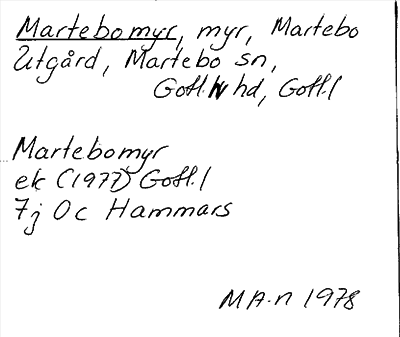 Martebomyr, myr, Martebo
Utgård, Martebo sn,
Gotl. N hd, Gotl. l
Martebomyr
ek (1977) Gotl. l
7j 0c Hammars
M A-n 1978